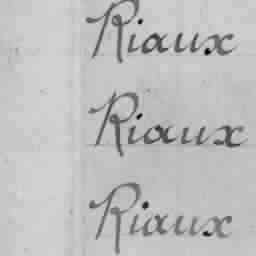 Riaux
Riaux
Riaux